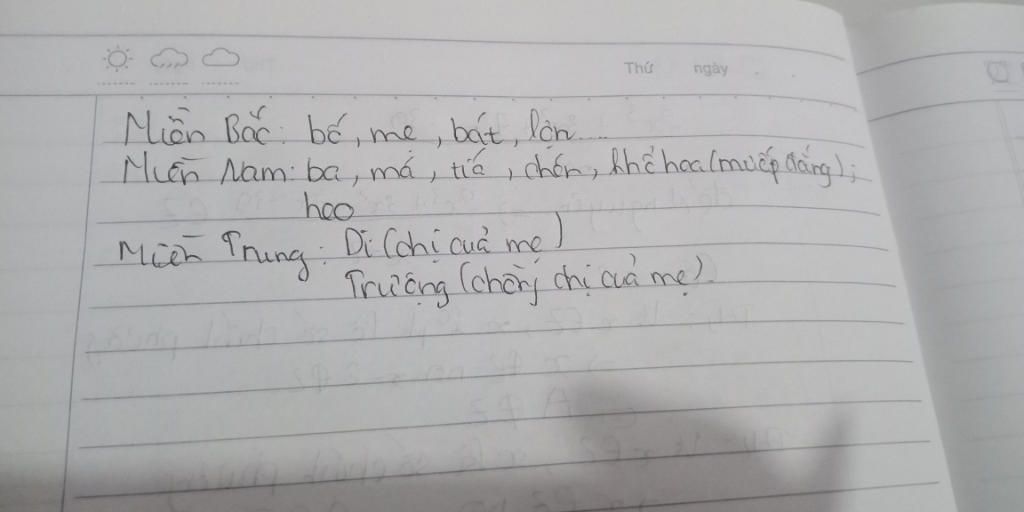 Thứ ngày
Miền Bắc: bố, mẹ, bát, lợn...
Miền Nam: ba, má, tiá, chén, khổ hoa (mướp đắng);
heo
Miền Trung: Dì (chị của mẹ)
Trượng (chồng chị của mẹ).